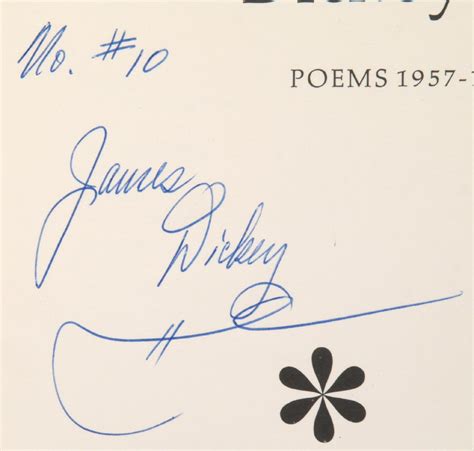 No. #10
POEMS 1957-1
James
Dickey